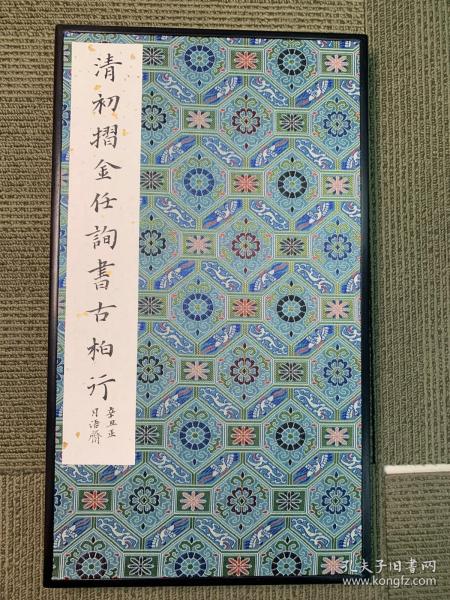 清初摺金任詢書古柏行
辛丑正
月浩齋
孔夫子旧书网
www.kongfz.com